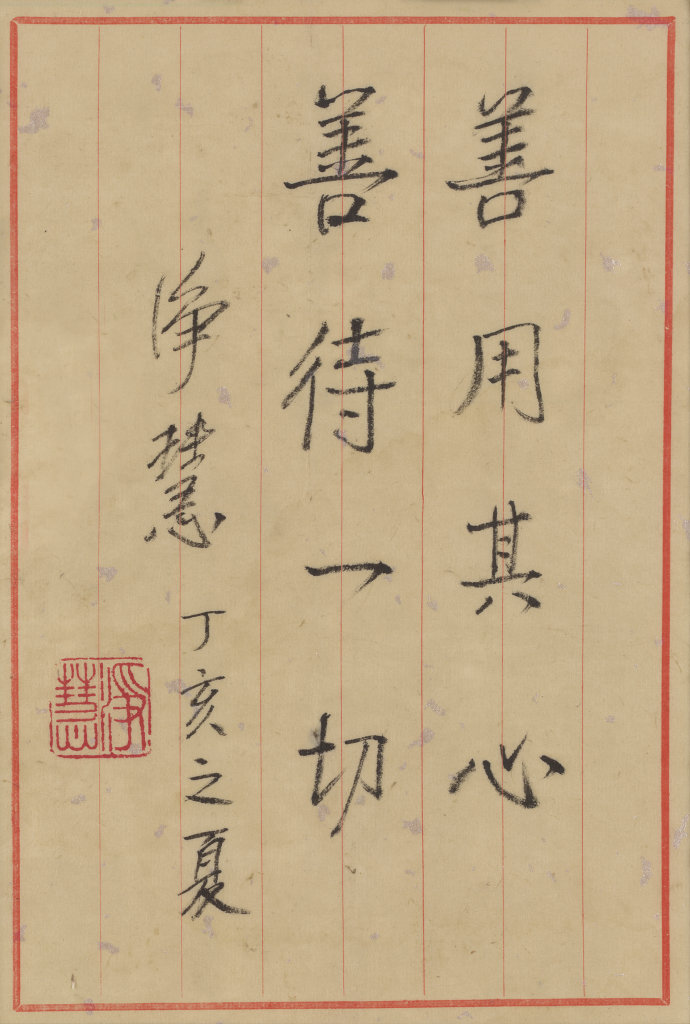 善用其心
善待一切
净慧 丁亥之夏
淨慧